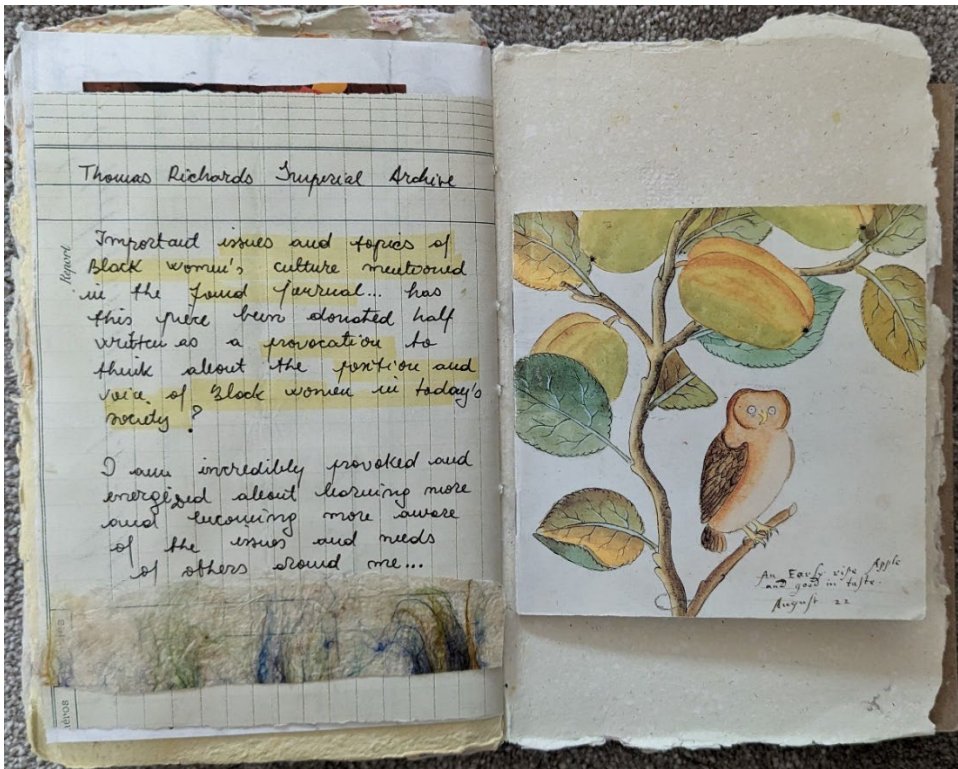 Thomas Richards Imperial Archive
Report
Important issues and topics of
Black women's culture mentioned
in the found journal... has
this piere been donated half
written as a provocation to
think about the position and
voice of Black women in today's
society?
I am incredibly provoked and
energized about learning more
and becoming more aware
of the issues and needs
of others around me...
An Early ripe Apple
and good in taste.
August 22